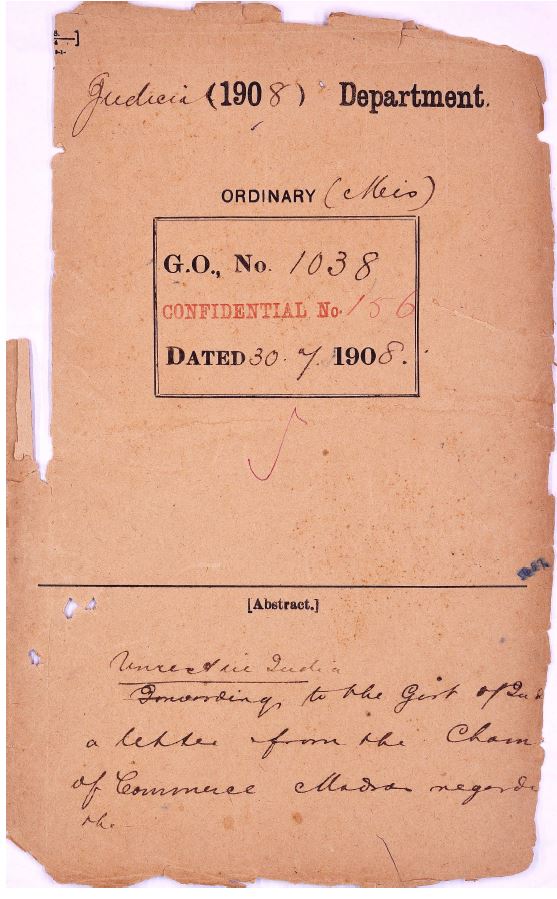 Judicial (1908) Department.
ORDINARY (Mis)
G.O., No. 1038
CONFIDENTIAL No. 156
DATED 30.7.1908.
[Abstract.]
Unrest in India
Forwarding to the Govt of Ind
a letter from the Cham
of Commerce Madras regardi
the